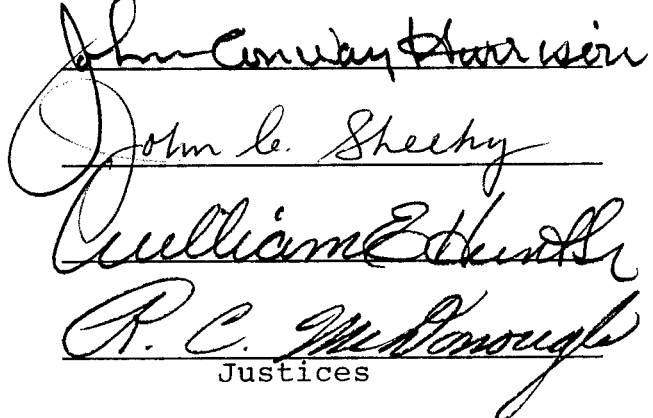 John Conway Harrison
John C. Sheehy
William E. Hunt Sr
R. C. McDonough
Justices